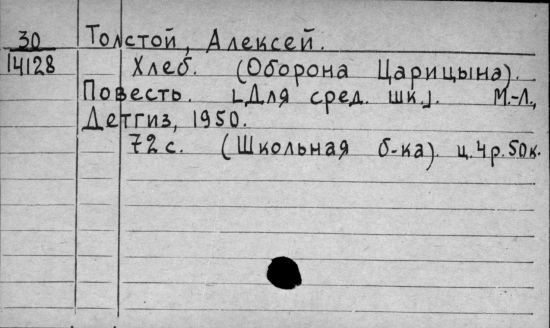 30 Толстой, Алексей.
14128 Хлеб. (Оборона Царицына).
Повесть. [Для сред. шк.]. М.-Л.,
Детгиз, 1950.
72 с. (Школьная б-ка). ц. 4 р. 50 к.